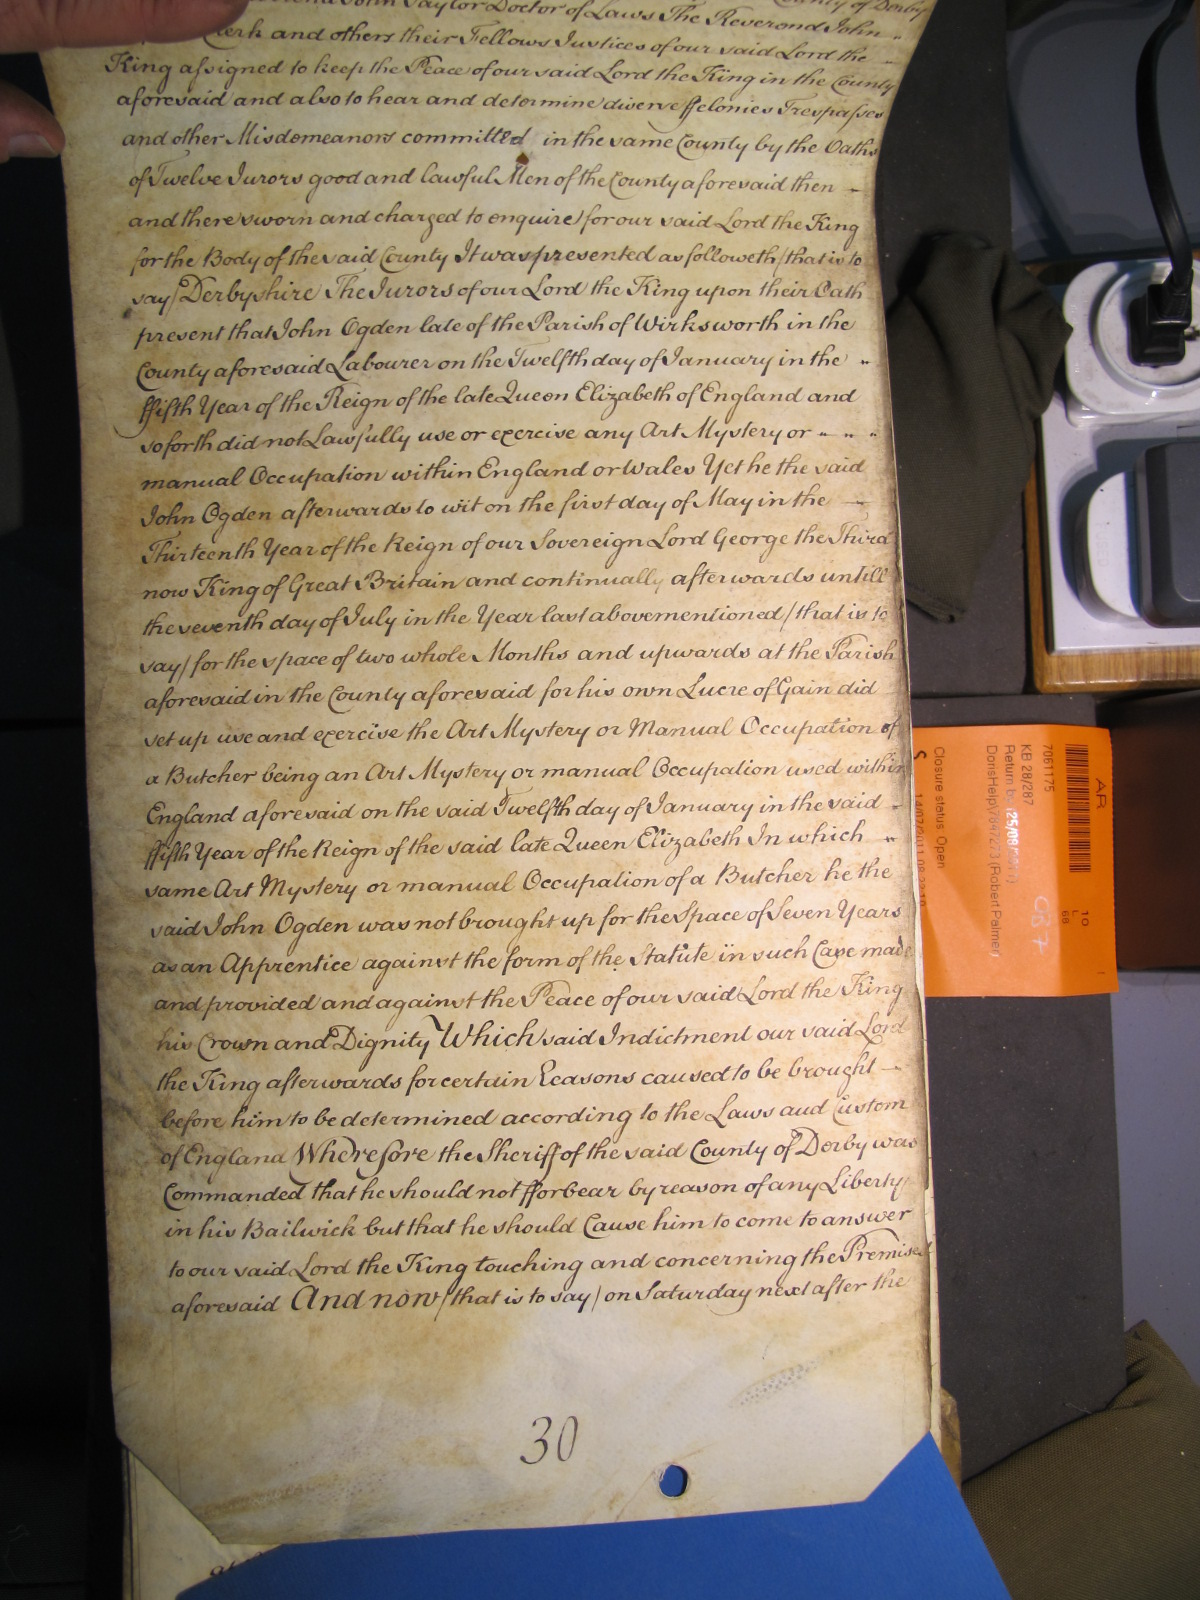 County of Derby
John Taylor Doctor of Laws The Reverend John
Clerk and others their Fellows Justices of our said Lord the
King assigned to keep the Peace of our said Lord the King in the County
aforesaid and also to hear and determine divers ffelonies Trespasses
and other Misdemeanors committed in the same County by the Oaths
of Twelve Jurors good and lawful Men of the County aforesaid then
and there sworn and charged to enquire for our said Lord the King
for the Body of the said County It was presented as followeth /that is to
say/ Derbyshire The Jurors of our Lord the King upon their Oath
present that John Ogden late of the Parish of Wirksworth in the
County aforesaid Labourer on the Twelfth day of January in the
ffifth Year of the Reign of the late Queen Elizabeth of England and
so forth did not Lawfully use or exercise any Art Mystery or
manual Occupation within England or Wales Yet he the said
John Ogden afterwards to wit on the first day of May in the
Thirteenth Year of the Reign of our Sovereign Lord George the Third
now King of Great Britain and continually afterwards untill
the seventh day of July in the Year last abovementioned /that is to
say/ for the space of two whole Months and upwards at the Parish
aforesaid in the County aforesaid for his own Lucre of Gain did
set up use and exercise the Art Mystery or Manual Occupation of
a Butcher being an Art Mystery or manual Occupation used within
England aforesaid on the said Twelfth day of January in the said
ffifth Year of the Reign of the said late Queen Elizabeth In which
same Art Mystery or manual Occupation of a Butcher he the
said John Ogden was not brought up for the Space of Seven Years
as an Apprentice against the form of the Statute in such Case made
and provided and against the Peace of our said Lord the King
his Crown and Dignity Which said Indictment our said Lord
the King afterwards for certain Reasons caused to be brought
before him to be determined according to the Laws and Custom
of England Wherefore the Sheriff of the said County of Derby was
Commanded that he should not fforbear by reason of any Liberty
in his Bailwick but that he should Cause him to come to answer
to our said Lord the King touching and concerning the Premises
aforesaid And now /that is to say/ on Saturday next after the
30
AR
7061175
KB 28/287
Return by
(Robert Palmer)
Closure status: Open